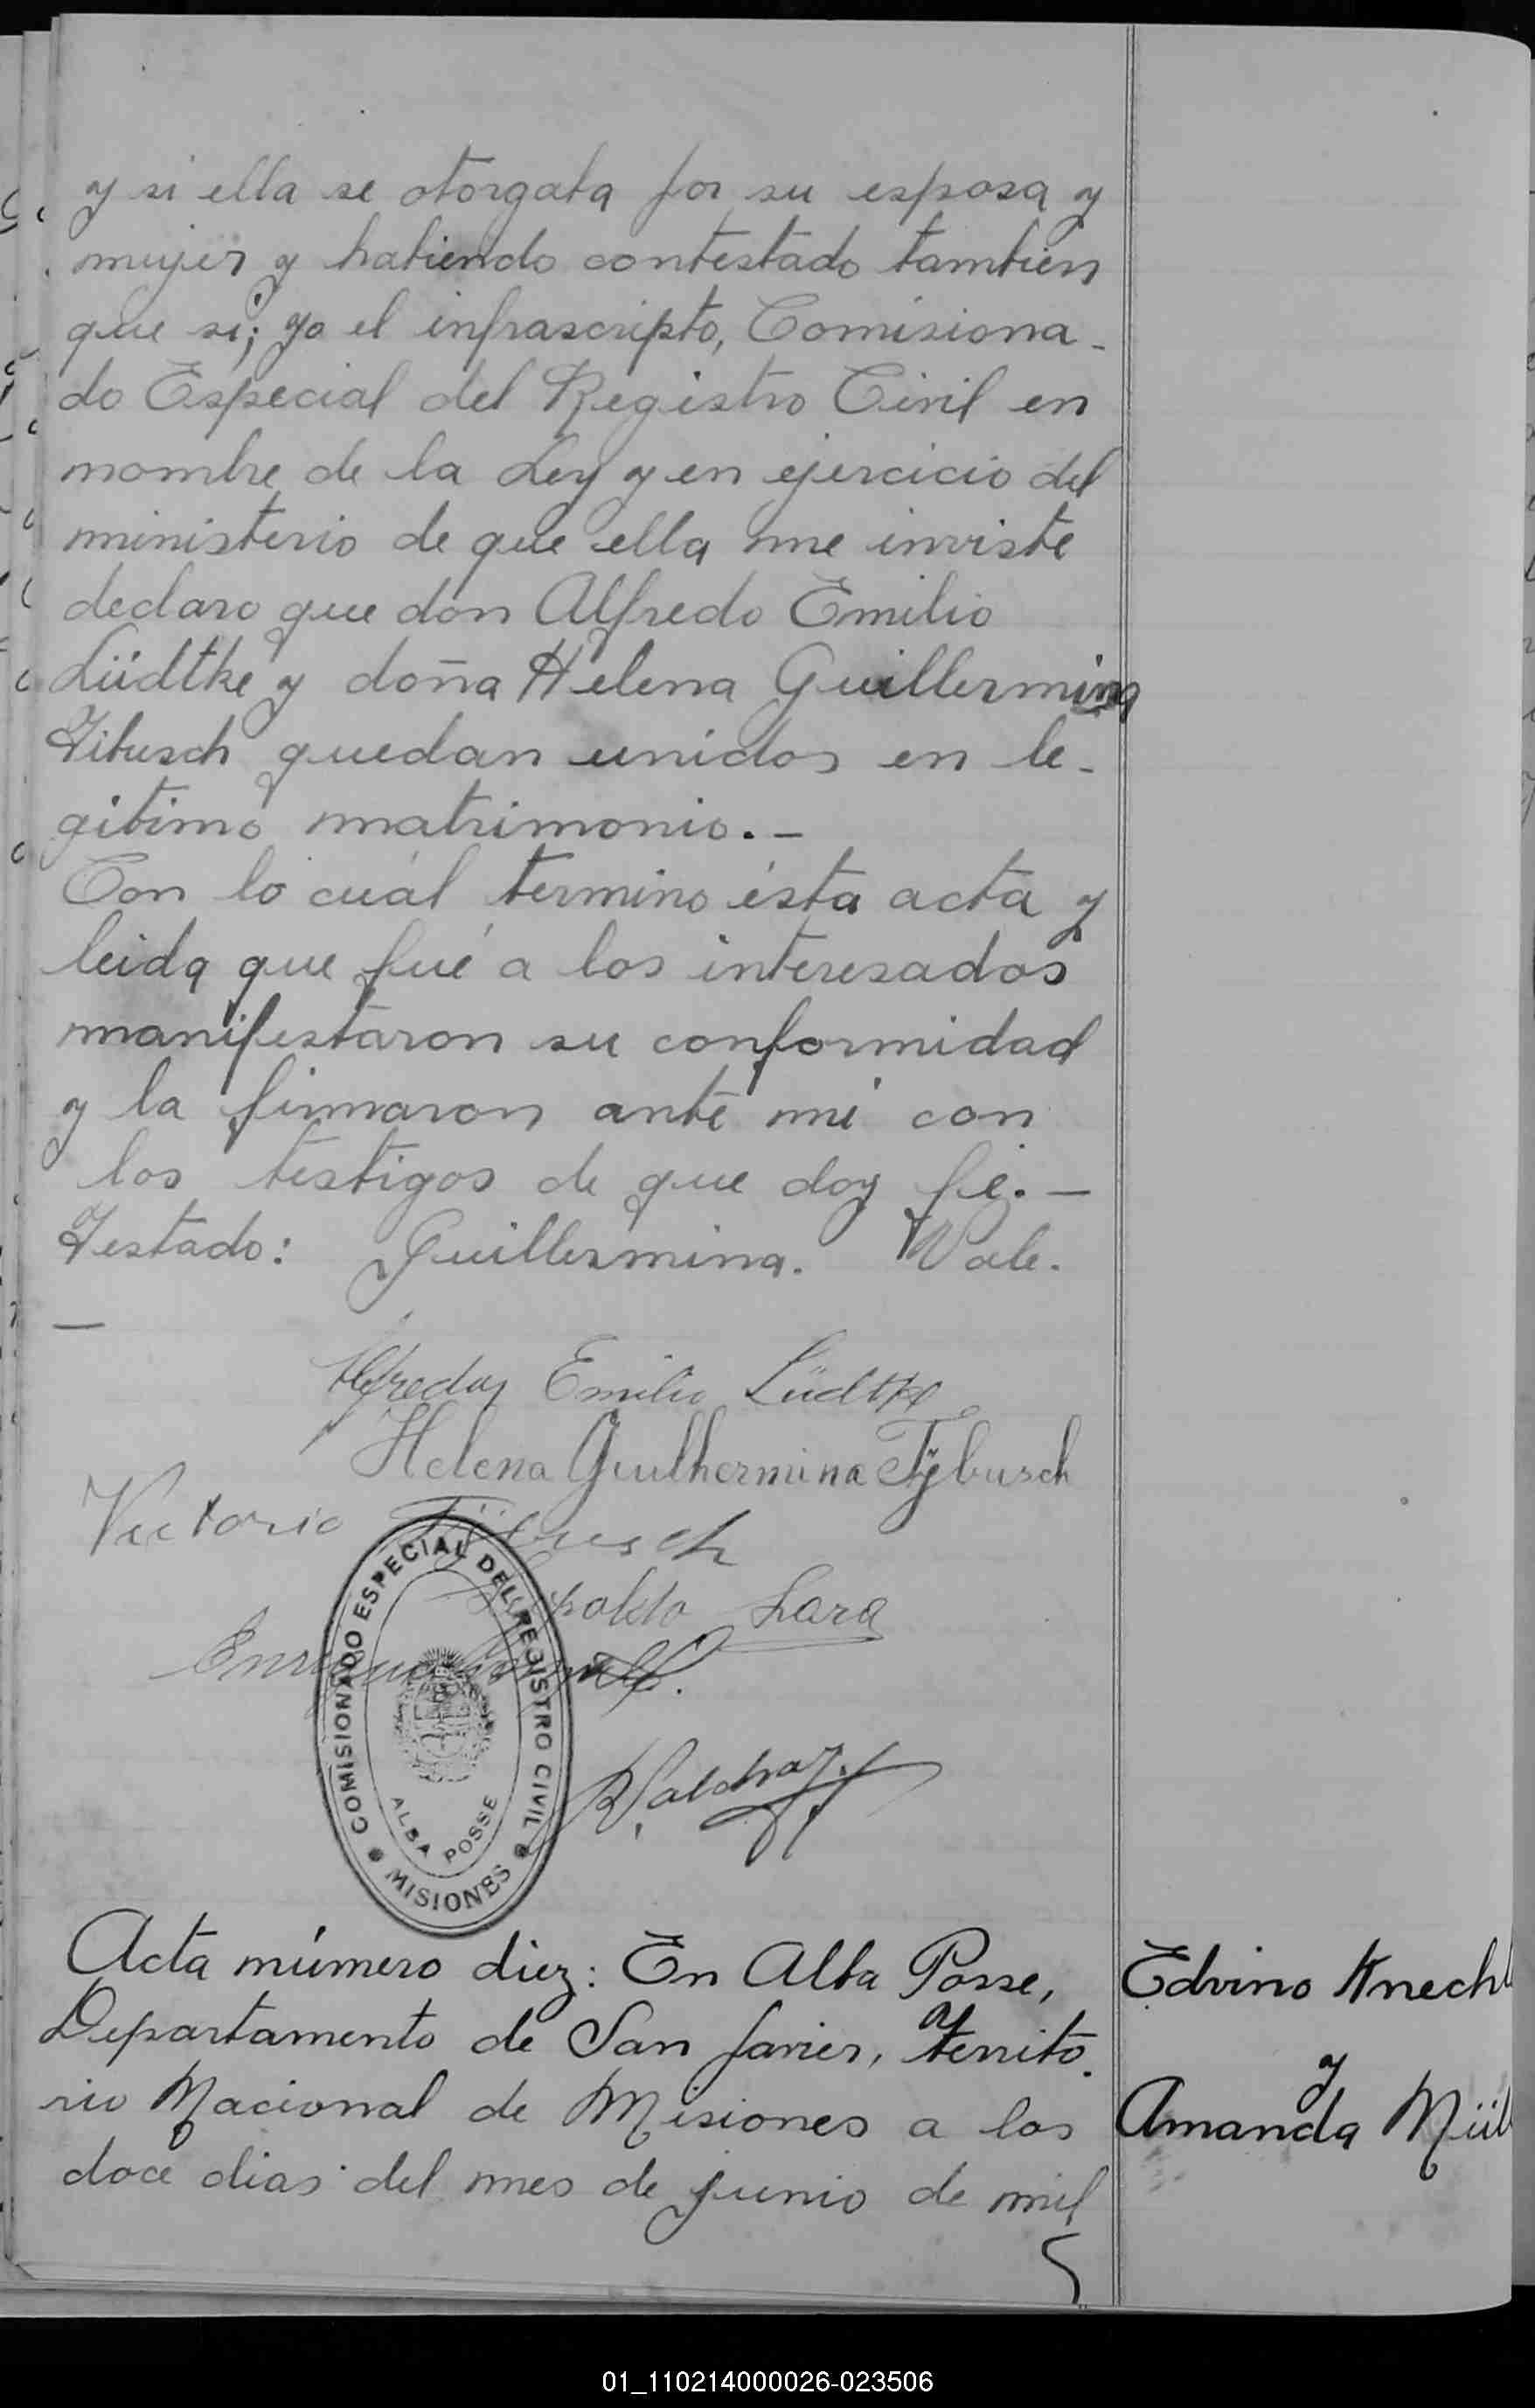 y si ella se otorgaba por su esposa y
mujer y habiendo contestado tambien
que si; yo el infrascripto, Comisiona-
do Especial del Registro Civil en
nombre de la Ley y en ejercicio del
ministerio de que ella me inviste
declaro que don Alfredo Emilio
Lüdtke y doña Helena Guillermina
Tibusch quedan unidos en le-
gitimo matrimonio.-
Con lo cuál termino ésta acta y
leida que fué a los interesados
manifestaron su conformidad
y la firmaron ante mi con
los testigos de que doy fé.-
Testado: Guillermina. Vale.
-
Alfredo Emilio Lüdtke
Helena Guilhermina Tÿbusch
Victorio Tÿbusch
Lara
COMISIONADO ESPECIAL DEL REGISTRO CIVIL
ALBA POSSE
MISIONES
Acta número diez: En Alba Posse,
Departamento de San Javier, Territo-
rio Nacional de Misiones a los
doce dias del mes de junio de mil
Edvino Knecht
y
Amanda Mül
01_110214000026-023506